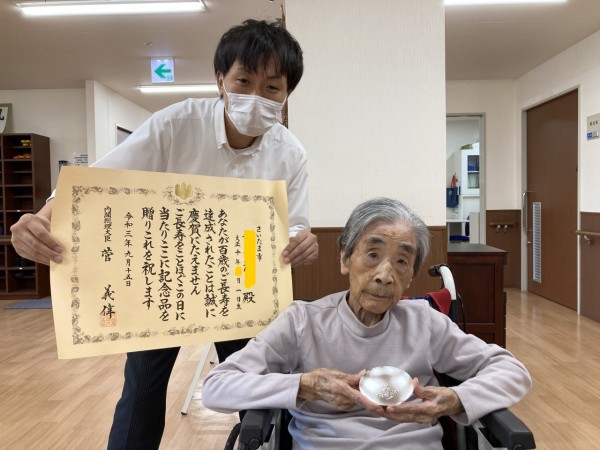 さいたま市
殿
大正十年 月一日生
あなたが百歳のご長寿を
達成されたことは誠に
慶賀にたえません
ご長寿をことほぎこの日に
当たりここに記念品を
贈りこれを祝します
令和三年九月十五日
内閣総理大臣 菅 義偉